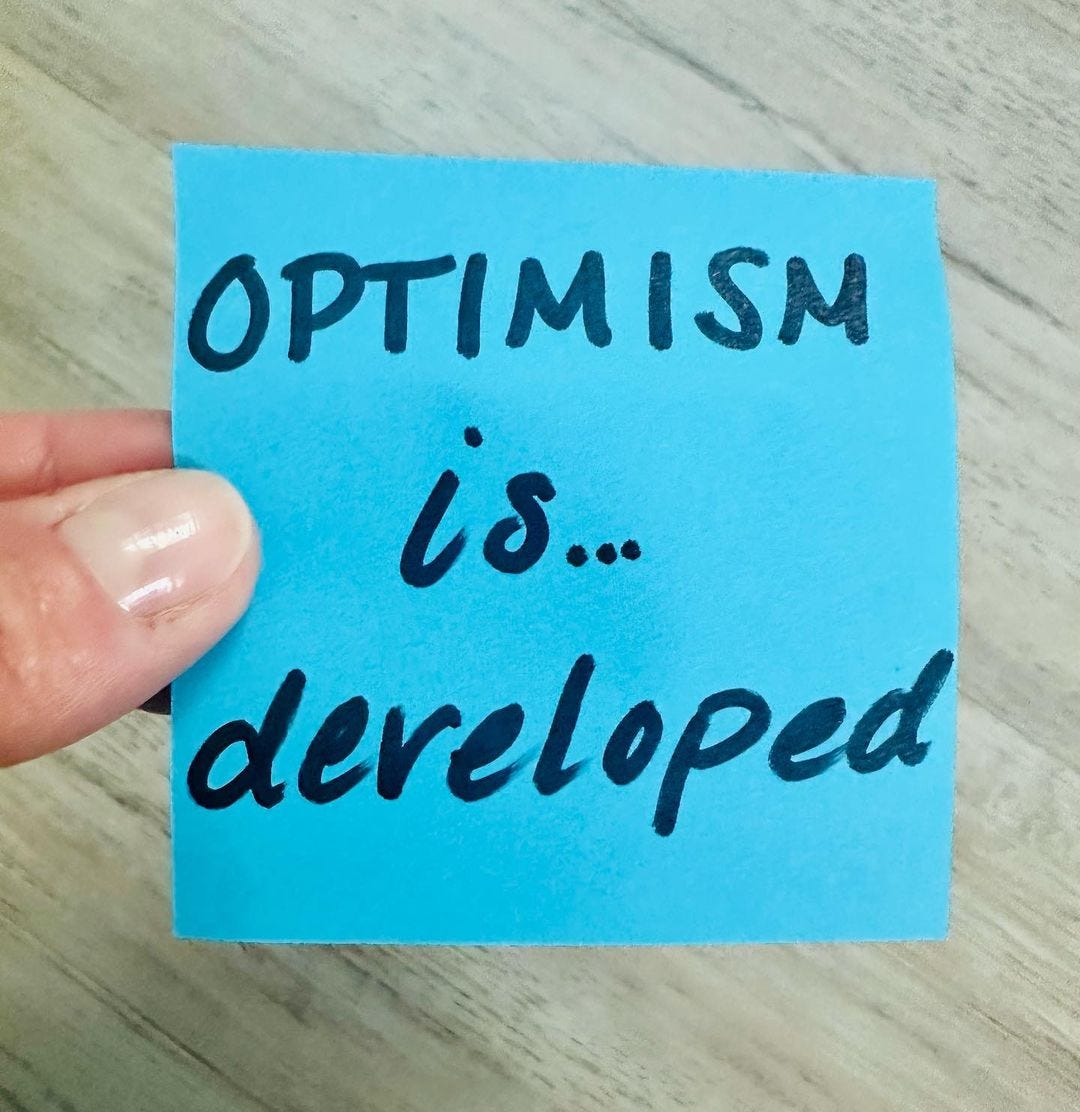 OPTIMISM
is...
developed